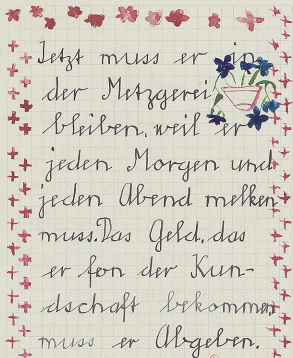 Jetzt muss er in
der Metzgerei
bleiben, weil er
jeden Morgen und
jeden Abend melken
muss. Das Geld, das
er fon der Kun-
dschaft bekommen
muss er Abgeben.